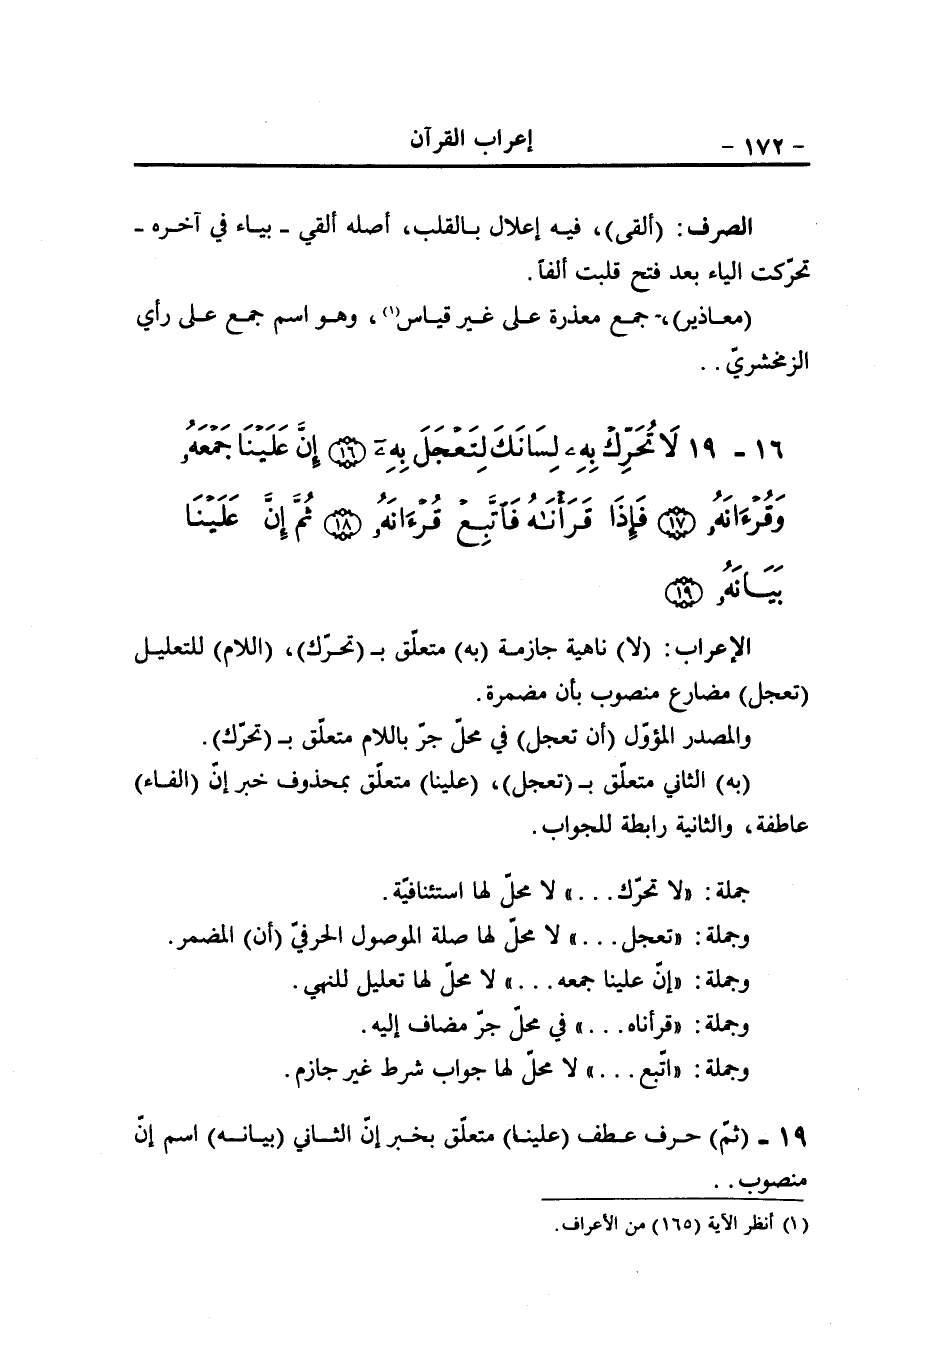 - ١٧٢ -
إعراب القرآن
الصرف: (ألقى)، فيه إعلال بالقلب، أصله ألقي - بياء في آخره -
تحرّكت الياء بعد فتح قلبت ألفاً.
(معاذير)، جمع معذرة على غير قياس(١)، وهو اسم جمع على رأي
الزمخشريّ . .
١٦ - ١٩ لَا تُحَرِّكْ بِهِۦ لِسَانَكَ لِتَعْجَلَ بِهِۦٓ ١٦ إِنَّ عَلَيْنَا جَمْعَهُۥ
وَقُرْءَانَهُۥ ١٧ فَإِذَا قَرَأْنَٰهُ فَٱتَّبِعْ قُرْءَانَهُۥ ١٨ ثُمَّ إِنَّ عَلَيْنَا
بَيَانَهُۥ ١٩
الإعراب: (لا) ناهية جازمة (به) متعلّق بـ (تحرّك)، (اللام) للتعليل
(تعجل) مضارع منصوب بأن مضمرة.
والمصدر المؤوّل (أن تعجل) في محلّ جرّ باللام متعلّق بـ (تحرّك).
(به) الثاني متعلّق بـ (تعجل)، (علينا) متعلّق بمحذوف خبر إنّ (الفاء)
عاطفة، والثانية رابطة للجواب.
جملة: «لا تحرّك. . .» لا محلّ لها استئنافيّة.
وجملة: «تعجل. . .» لا محلّ لها صلة الموصول الحرفيّ (أن) المضمر.
وجملة: «إنّ علينا جمعه. . .» لا محلّ لها تعليل للنهي.
وجملة: «قرأناه. . .» في محلّ جرّ مضاف إليه.
وجملة: «اتّبع. . .» لا محلّ لها جواب شرط غير جازم.
١٩ - (ثمّ) حرف عطف (علينا) متعلّق بخبر إنّ الثاني (بيانه) اسم إنّ
منصوب. .
(١) أنظر الآية (١٦٥) من الأعراف.